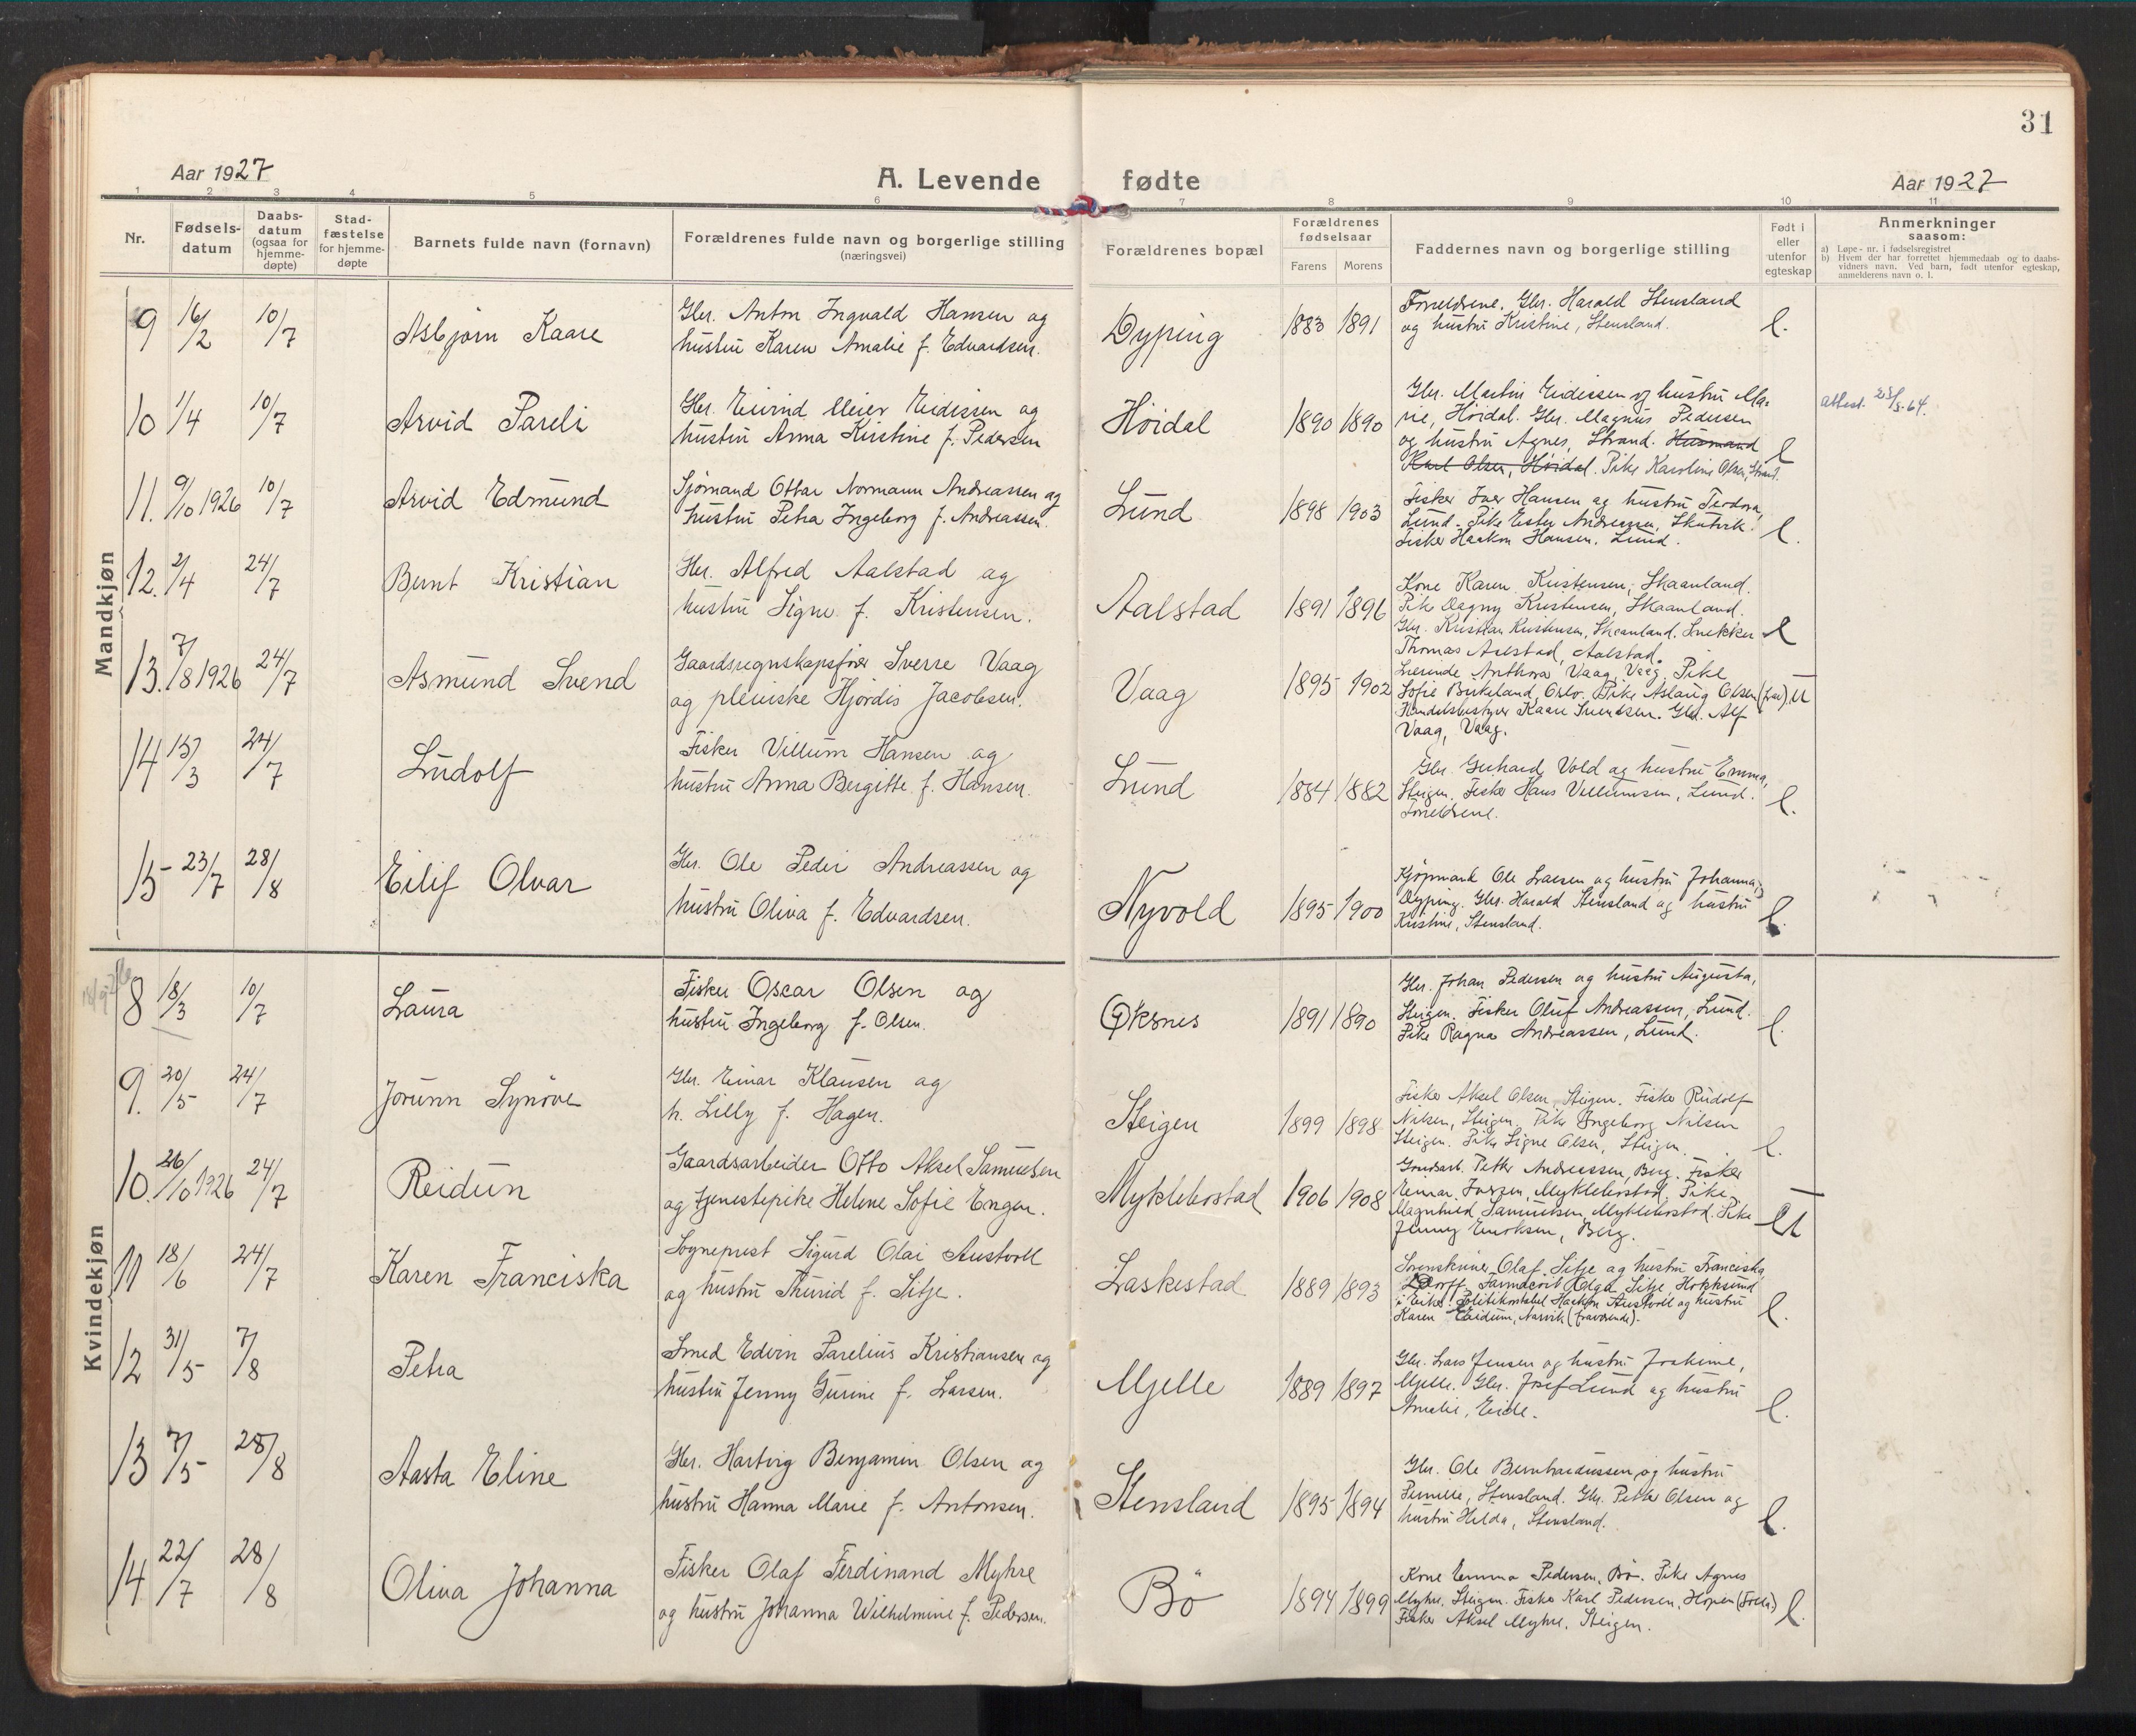 31
Aar 1927
A. Levende fødte
Aar 1927
1 2 3 4 5 6 7 8 9 10 11
Nr.
Fødsels-
datum
Daabs-
datum
(ogsaa for
hjemme-
døpte)
Stad-
fæstelse
for hjemme-
døpte
Barnets fulde navn (fornavn)
Forældrenes fulde navn og borgerlige stilling
(næringsvei)
Forældrenes bopæl
Forældrenes
fødselsaar
Farens Morens
Faddernes navn og borgerlige stilling
Født i
eller
utenfor
egteskap
Anmerkninger
saasom:
a) Løpe-nr. i fødselsregistret
b) Hvem der har forrettet hjemmedaab og to daabs-
vidners navn. Ved barn, født utenfor egteskap,
anmelderens navn o. l.
Mandkjøn
9 16/2 10/7 Asbjørn Kaare
Gbr. Anton Ingvald Hansen og
hustru Karen Amalie f. Edvardsen.
Dyping 1883 1891
Foreldrene. Gbr. Harald Stensland
og hustru Kristine, Stensland.
l.
10 1/4 10/7 Arvid Pareli
Gbr. Eivind Meier Eidissen og
hustru Anna Kirstine f. Pedersen
Höidal 1890 1890
Gbr. Martin Eidissen og hustru Ma-
rie, Höidal. Gbr. Magnus Pedersen
og hustru Agnes, Strand. Husmand
Karl Olsen, Höidal. Pike Karoline Olsen, Strand.
l
attest.
11. 9/10 1926 10/7 Arvid Edmund
Sjömand Ottar Normann Andreassen og
hustru Petra Ingeborg f. Andreassen.
Lund 1898 1903
Fisker Iver Hansen og hustru Teodora,
Lund. Pike Ester Andreassen, Skutvik.
Fisker Haakon Hansen, Lund.
l.
12. 2/4 24/7 Bernt Kristian
Gbr. Alfred Aalstad og
hustru Signe f. Kristensen.
Aalstad 1891 1896
Kone Karen Kristensen, Skaanland.
Pike Dagny Kristensen, Skaanland.
Gbr. Kristian Kristensen, Skaanland. Snekker
Thomas Aalstad, Aalstad.
l
13. 7/8 1926 24/7 Asmund Svend
Gaardsregnskapsfører Sverre Vaag
og pleierske Hjördis Jacobsen.
Vaag 1895 1902
Lærerinde Anthora Vaag, Vaag. Pike
Sofie Birkeland, Oslo. Pike Aslaug Olsen
Handelsbestyrer Kaare Svendsen. Gbr. Alf
Vaag, Vaag.
u
14 15/3 24/7 Ludolf
Fisker Villum Hansen og
hustru Anna Bergitte f. Hansen.
Lund 1884 1882
Gbr. Gerhard Vold og hustru Emma,
Steigen. Fisker Hans Villumsen, Lund.
Foreldrene.
l.
15 23/7 28/8 Eilif Olvar
Gbr. Ole Peder Andreassen og
hustru Oliva f. Edvardsen.
Nyvold 1895 1900
Kjøpmand Ole Larsen og hustru Johanna,
Dyping. Gbr. Harald Stensland og hustru
Kristine, Stensland.
l.
Kvindekjøn
8 18/3 10/7 Laura
Fisker Oscar Olsen og
hustru Ingeborg f. Olsen.
Øksnes 1891 1890
Gbr. Johan Pedersen og hustru Augusta,
Steigen. Fisker Oluf Andreassen, Lund.
Pike Ragna Andreassen, Lund.
l.
9. 20/5 24/7 Jorunn Synöve
Gbr. Einar Klausen og
h. Lilly f. Hagen.
Steigen 1899 1898
Fisker Aksel Olsen, Steigen. Fisker Rudolf
Nilsen, Steigen. Pike Ingeborg Nilsen
Steigen. Pike Signe Olsen, Steigen.
l.
10. 26/10 1926 24/7 Reidun
Gaardsarbeider Otto Aksel Samuelsen
og tjenestepike Helene Sofie Engen.
Myklebostad 1906 1908
Gaardsarb. Petter Andreassen, Berg. Fisker
Einar Jorgen, Myklebostad. Pike
Magnhild Samuelsen, Myklebostad. Pike
Jenny Enoksen, Berg.
U
11 18/6 24/7 Karen Franciska
Sogneprest Sigurd Olai Austvoll
og hustru Thurid f. Sitje.
Laskestad 1889 1893
Olaf Sitje og hustru Franciska
Olga Sitje, Hokksund
i Eiker. Politikonstabel Haakon Austvoll og hustru
Karen Narvik (fraværende).
l.
12 31/5 7/8 Petra
Smed Edvin Parelius Kristiansen og
hustru Jenny Gurine f. Larsen.
Mjelle 1889 1897
Gbr. Lars Jensen og hustru Joakime,
Mjelle. Gbr. Josef Lund og hustru
Amalie, Eide.
l.
13 7/5 28/8 Aasta Eline
Gbr. Hartvig Benjamin Olsen og
hustru Hanna Marie f. Antonsen.
Stensland 1895 1894
Gbr. Ole Bernhardussen og hustru
Pernille, Stensland. Gbr. Petter Olsen og
hustru Hilda, Stensland.
l.
14 22/7 28/8 Oliva Johanna
Fisker Olaf Ferdinand Myhre
og hustru Johanna Wilhelmine f. Pedersen.
Bö 1894 1899
Kone Emma Pedersen, Bö. Pike Agnes
Myhre, Steigen. Fisker Karl Pedersen, Hopen
Fisker Aksel Myhre, Steigen.
l.